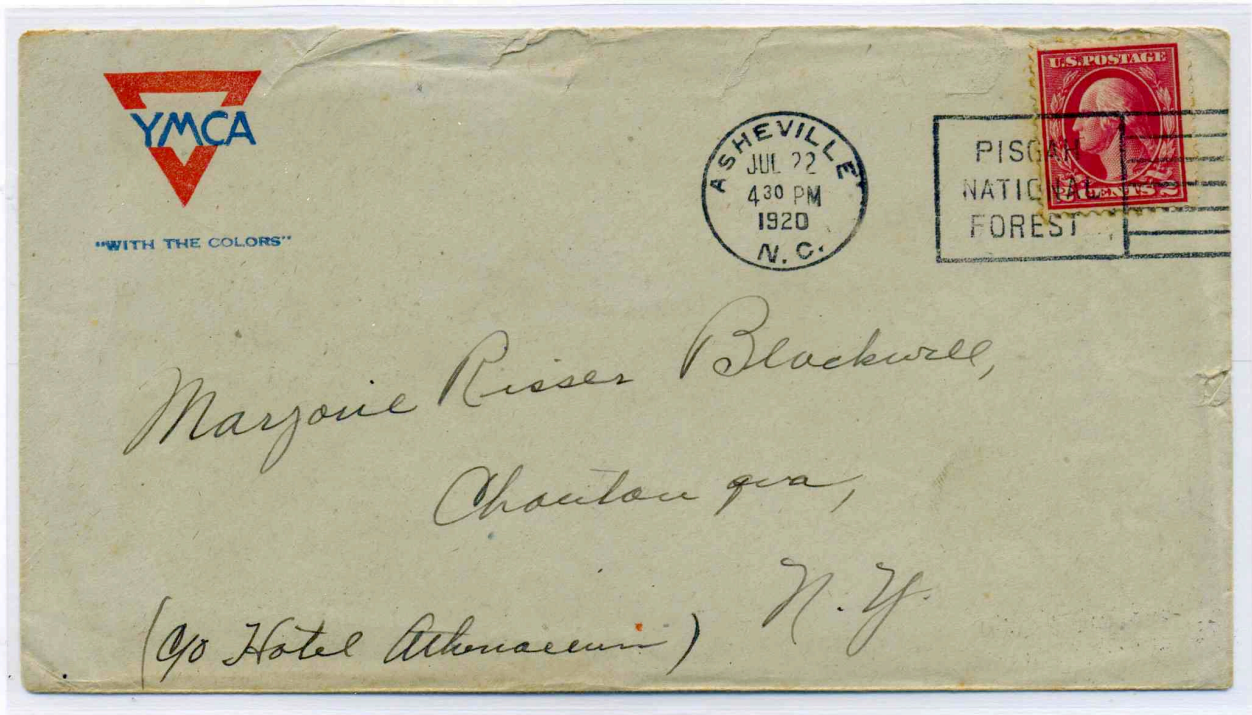 YMCA
"WITH THE COLORS"
ASHEVILLE
JUL 22
4 30 PM
1920
N. C.
PISGAH
NATIONAL
FOREST
U.S. POSTAGE
2 CENTS 2
Marjorie Risser Blackwell,
Chautauqua,
N. Y.
(c/o Hotel Athenaeum)